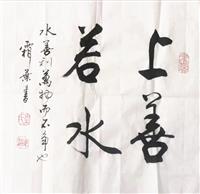 上善
若水
水善利萬物而不争也
霜葉書